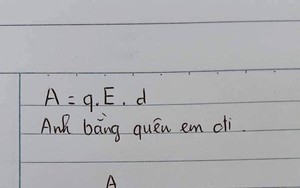 A = q.E.d
Anh bằng quên em đi.
A